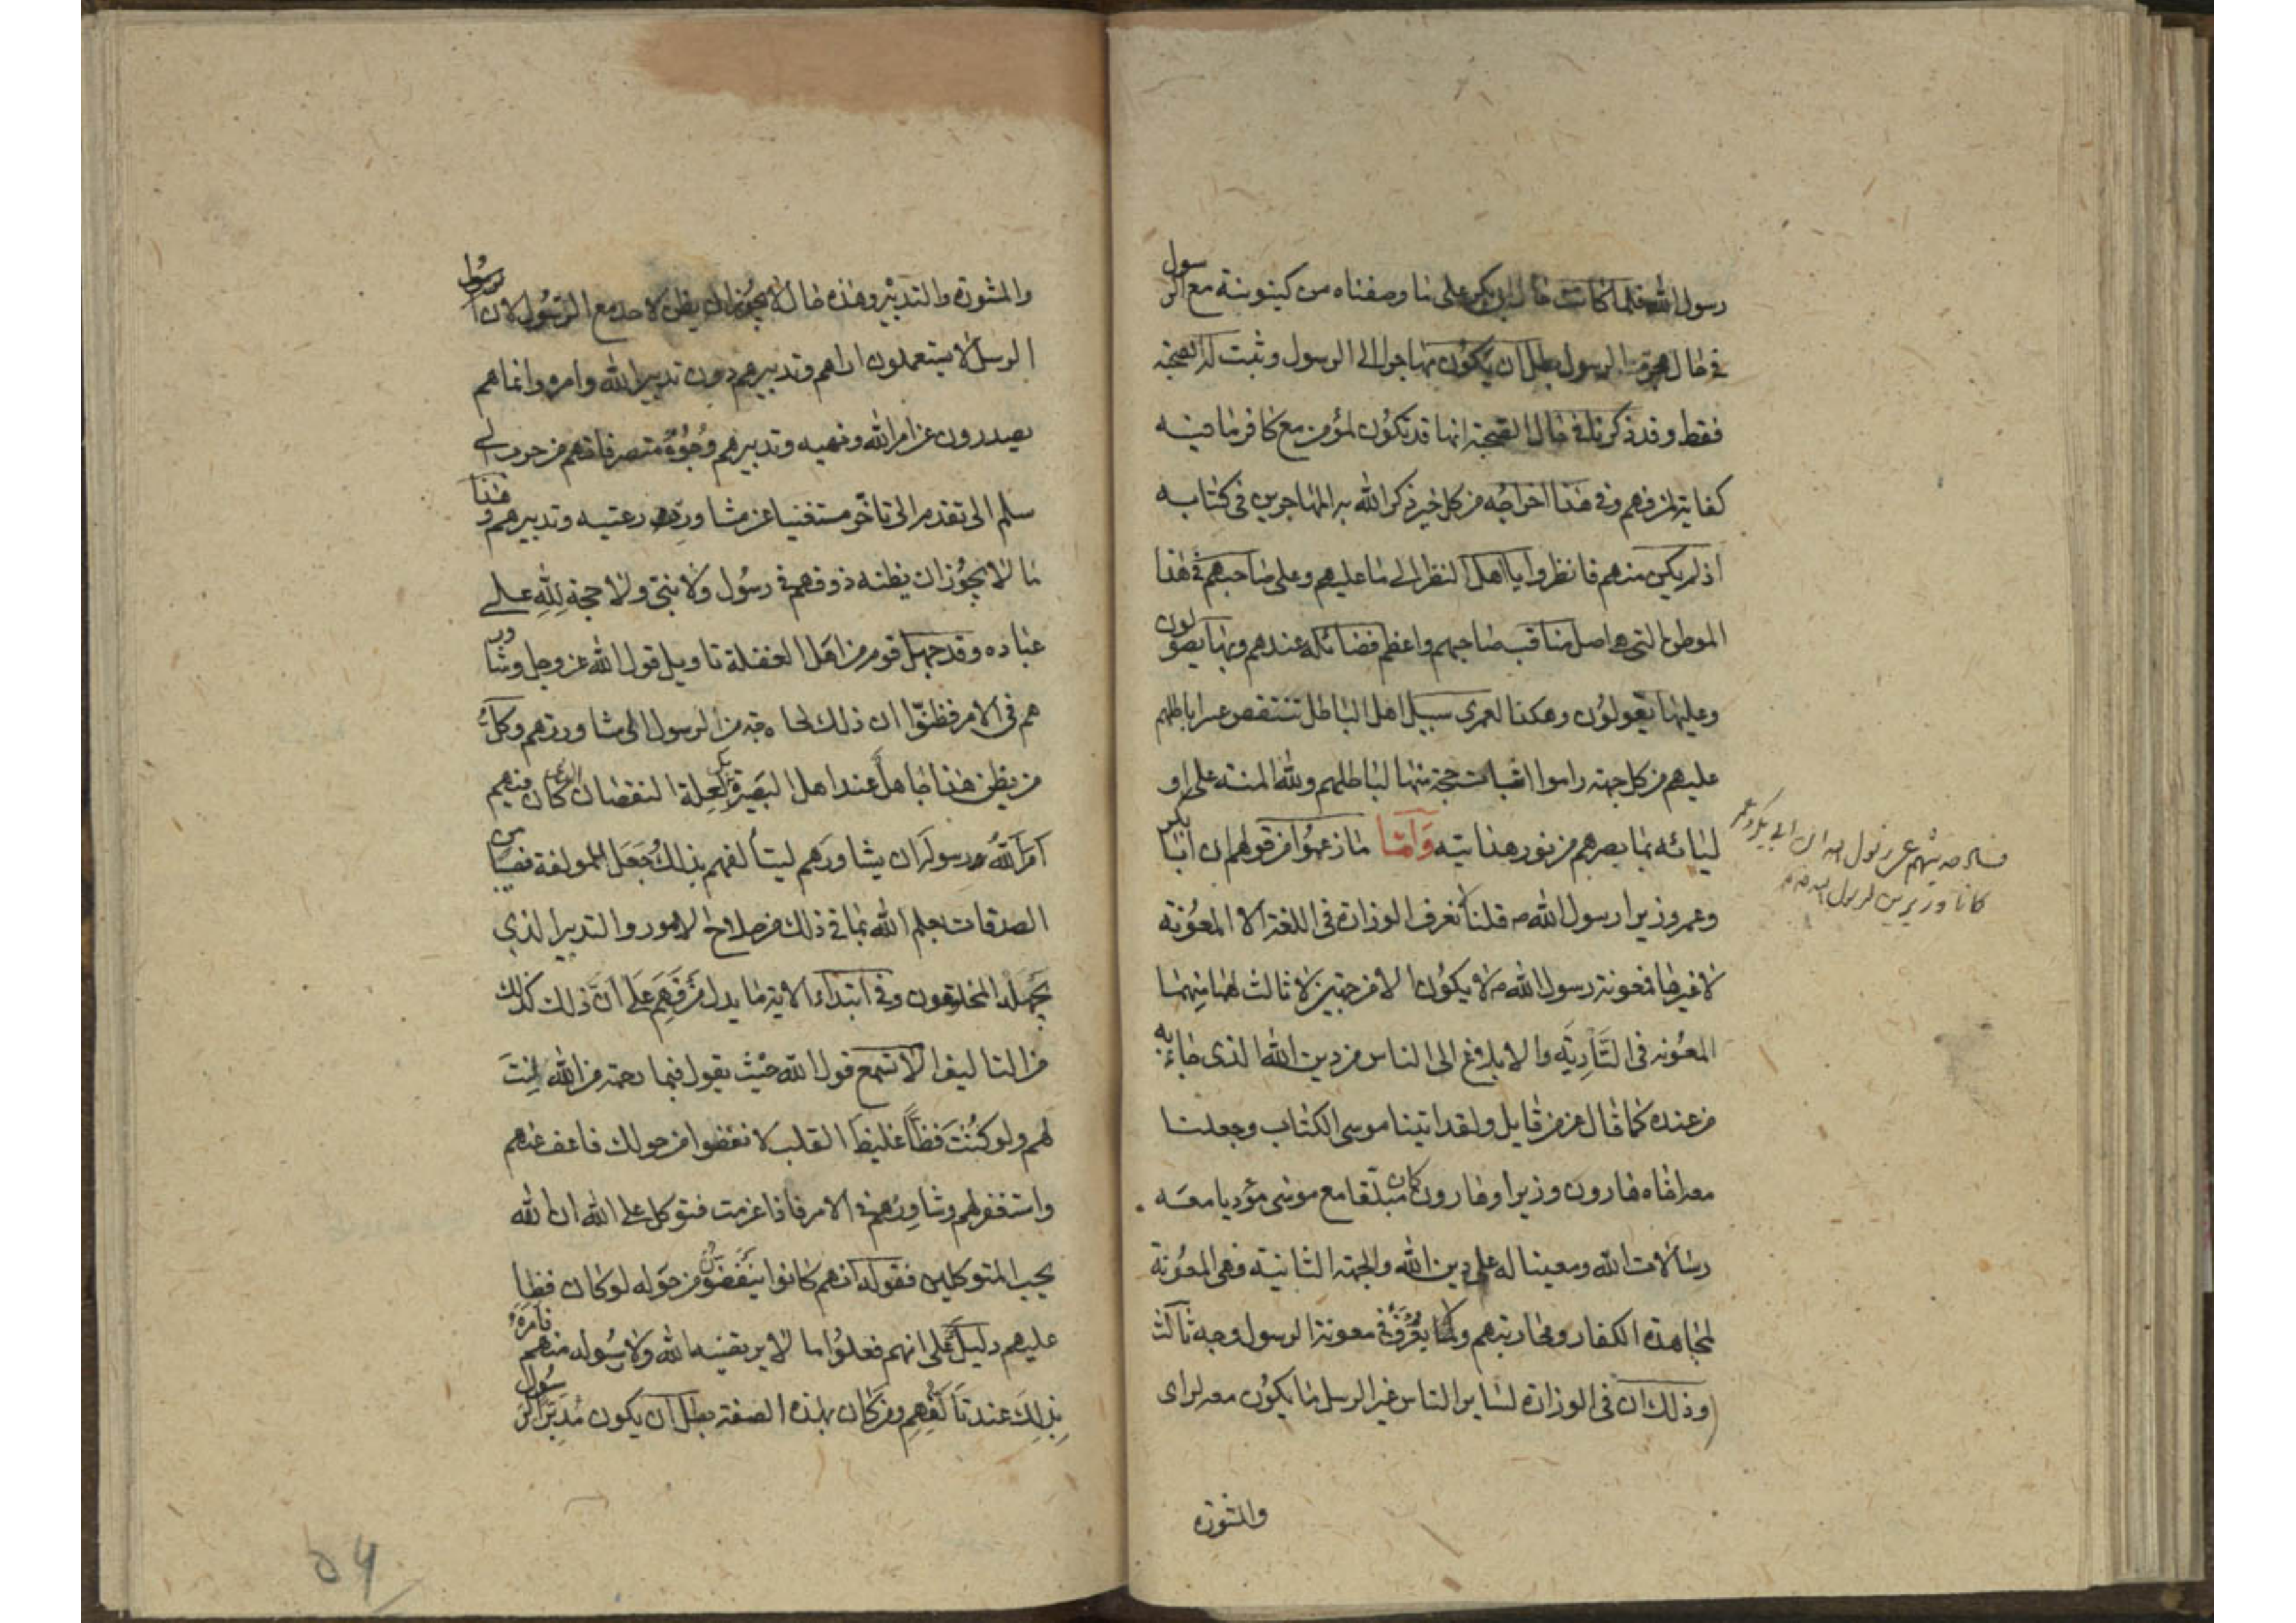 رسول الله فلما كانت حال ابي بكر على ما وصفناه من كينونية مع الرسول
في حال هجرة الرسول بطل ان يكون مهاجرا الى الرسول وثبت له الصحبة
فقط وقد ذكرنا في حال الصحبة انها قد تكون لمؤمن مع كافر ما فيه
كفاية لمن فهم وفي هذا اخراجه من كل خير ذكر الله به المهاجرين في كتابه
اذ لم يكن منهم فانظروا يا اهل النظر الى ما عليهم وعلى صاحبهم في هذا
الموطن التي هي اصل مناقب صاحبهم واعظم فضائله عندهم وبها يصولون
وعليها يعولون وهكذا لعمري سبيل اهل الباطل تنتقض عرا باطلهم
عليهم من كل جهة راموا اثبات حجة منها لباطلهم ولله المنة على او
ليائه بما بصرهم من نور هدايته وَاَمّا ما زعموا من قولهم ان ابا بكر
وعمر وزيرا رسول الله ص قلنا نعرف الوزارة في اللغة الا المعونة
لا غيرها فمعونة رسول الله ص لا يكون الا من جهتين لا ثالث لهما منهما
المعونة في التأدية والابلاغ الى الناس من دين الله الذي جاء به
من عنده كما قال عز من قايل ولقد اتينا موسى الكتاب وجعلنا
معه اخاه هارون وزيرا وهارون كان مبلغا مع موسى مؤديا معه
رسالات الله ومعينا له على دين الله والجهة الثانية فهي المعونة
لمجاهدة الكفار ومحاربتهم ولا يعرف في معونة الرسول وجه ثالث
وذلك ان في الوزارة لساير الناس غير الرسل ما يكون معه لراى
والمشورة
كانا وزيرين لرسول الله ص
والمشورة والتدبير وهذه حال لا يجوز ان يظن لاحد مع الرسول لان رسول
الرسل لا يستعملون اراهم وتدبيرهم دون تدبير الله وامره وانما هم
يصدرون عن امر الله ونهيه وتدبيرهم وجوه متصرفاتهم من حرب الى
سلم الى تقدم الى تاخر مستغنيا عن مشاورة رعتيه وتدبيرهم وهذا
ما لا يجوز ان يظنه ذو فهم في رسول ولا نبي ولا حجة لله على
عباده وقد جهل قوم من اهل الغفلة تاويل قول الله عز وجل وشاور
هم في الامر فظنوا ان ذلك لحاجة من الرسول الى مشاورتهم وكل
من يظن هذا جاهل عند اهل البصيرة لعلة النقصان كان منهم
امر الله رسوله ان يشاورهم ليتألفهم بذلك جعل للمولفة من
الصدقات بعلم الله بما في ذلك من صلاح الامور والتدبير الذي
يجهله المخلوقون وفي ابتداء الاية ما يدل من فهم على ان ذلك كذلك
من التاليف الا تسمع قول الله حيث يقول فبما رحمة من الله لنت
لهم ولو كنت فظا غليظ القلب لانفضوا من حولك فاعف عنهم
واستغفر لهم وشاورهم في الامر فاذا عزمت فتوكل على الله ان الله
يحب المتوكلين فقوله انهم كانوا ينفضون من حوله لو كان فظا
عليهم دليل على انهم فعلوا ما لا يرتضيه الله ولا رسوله منهم فامره
بذلك عند تألفهم ومن كان بهذه الصفة بطل ان يكون مدبر الرسول
۵۶